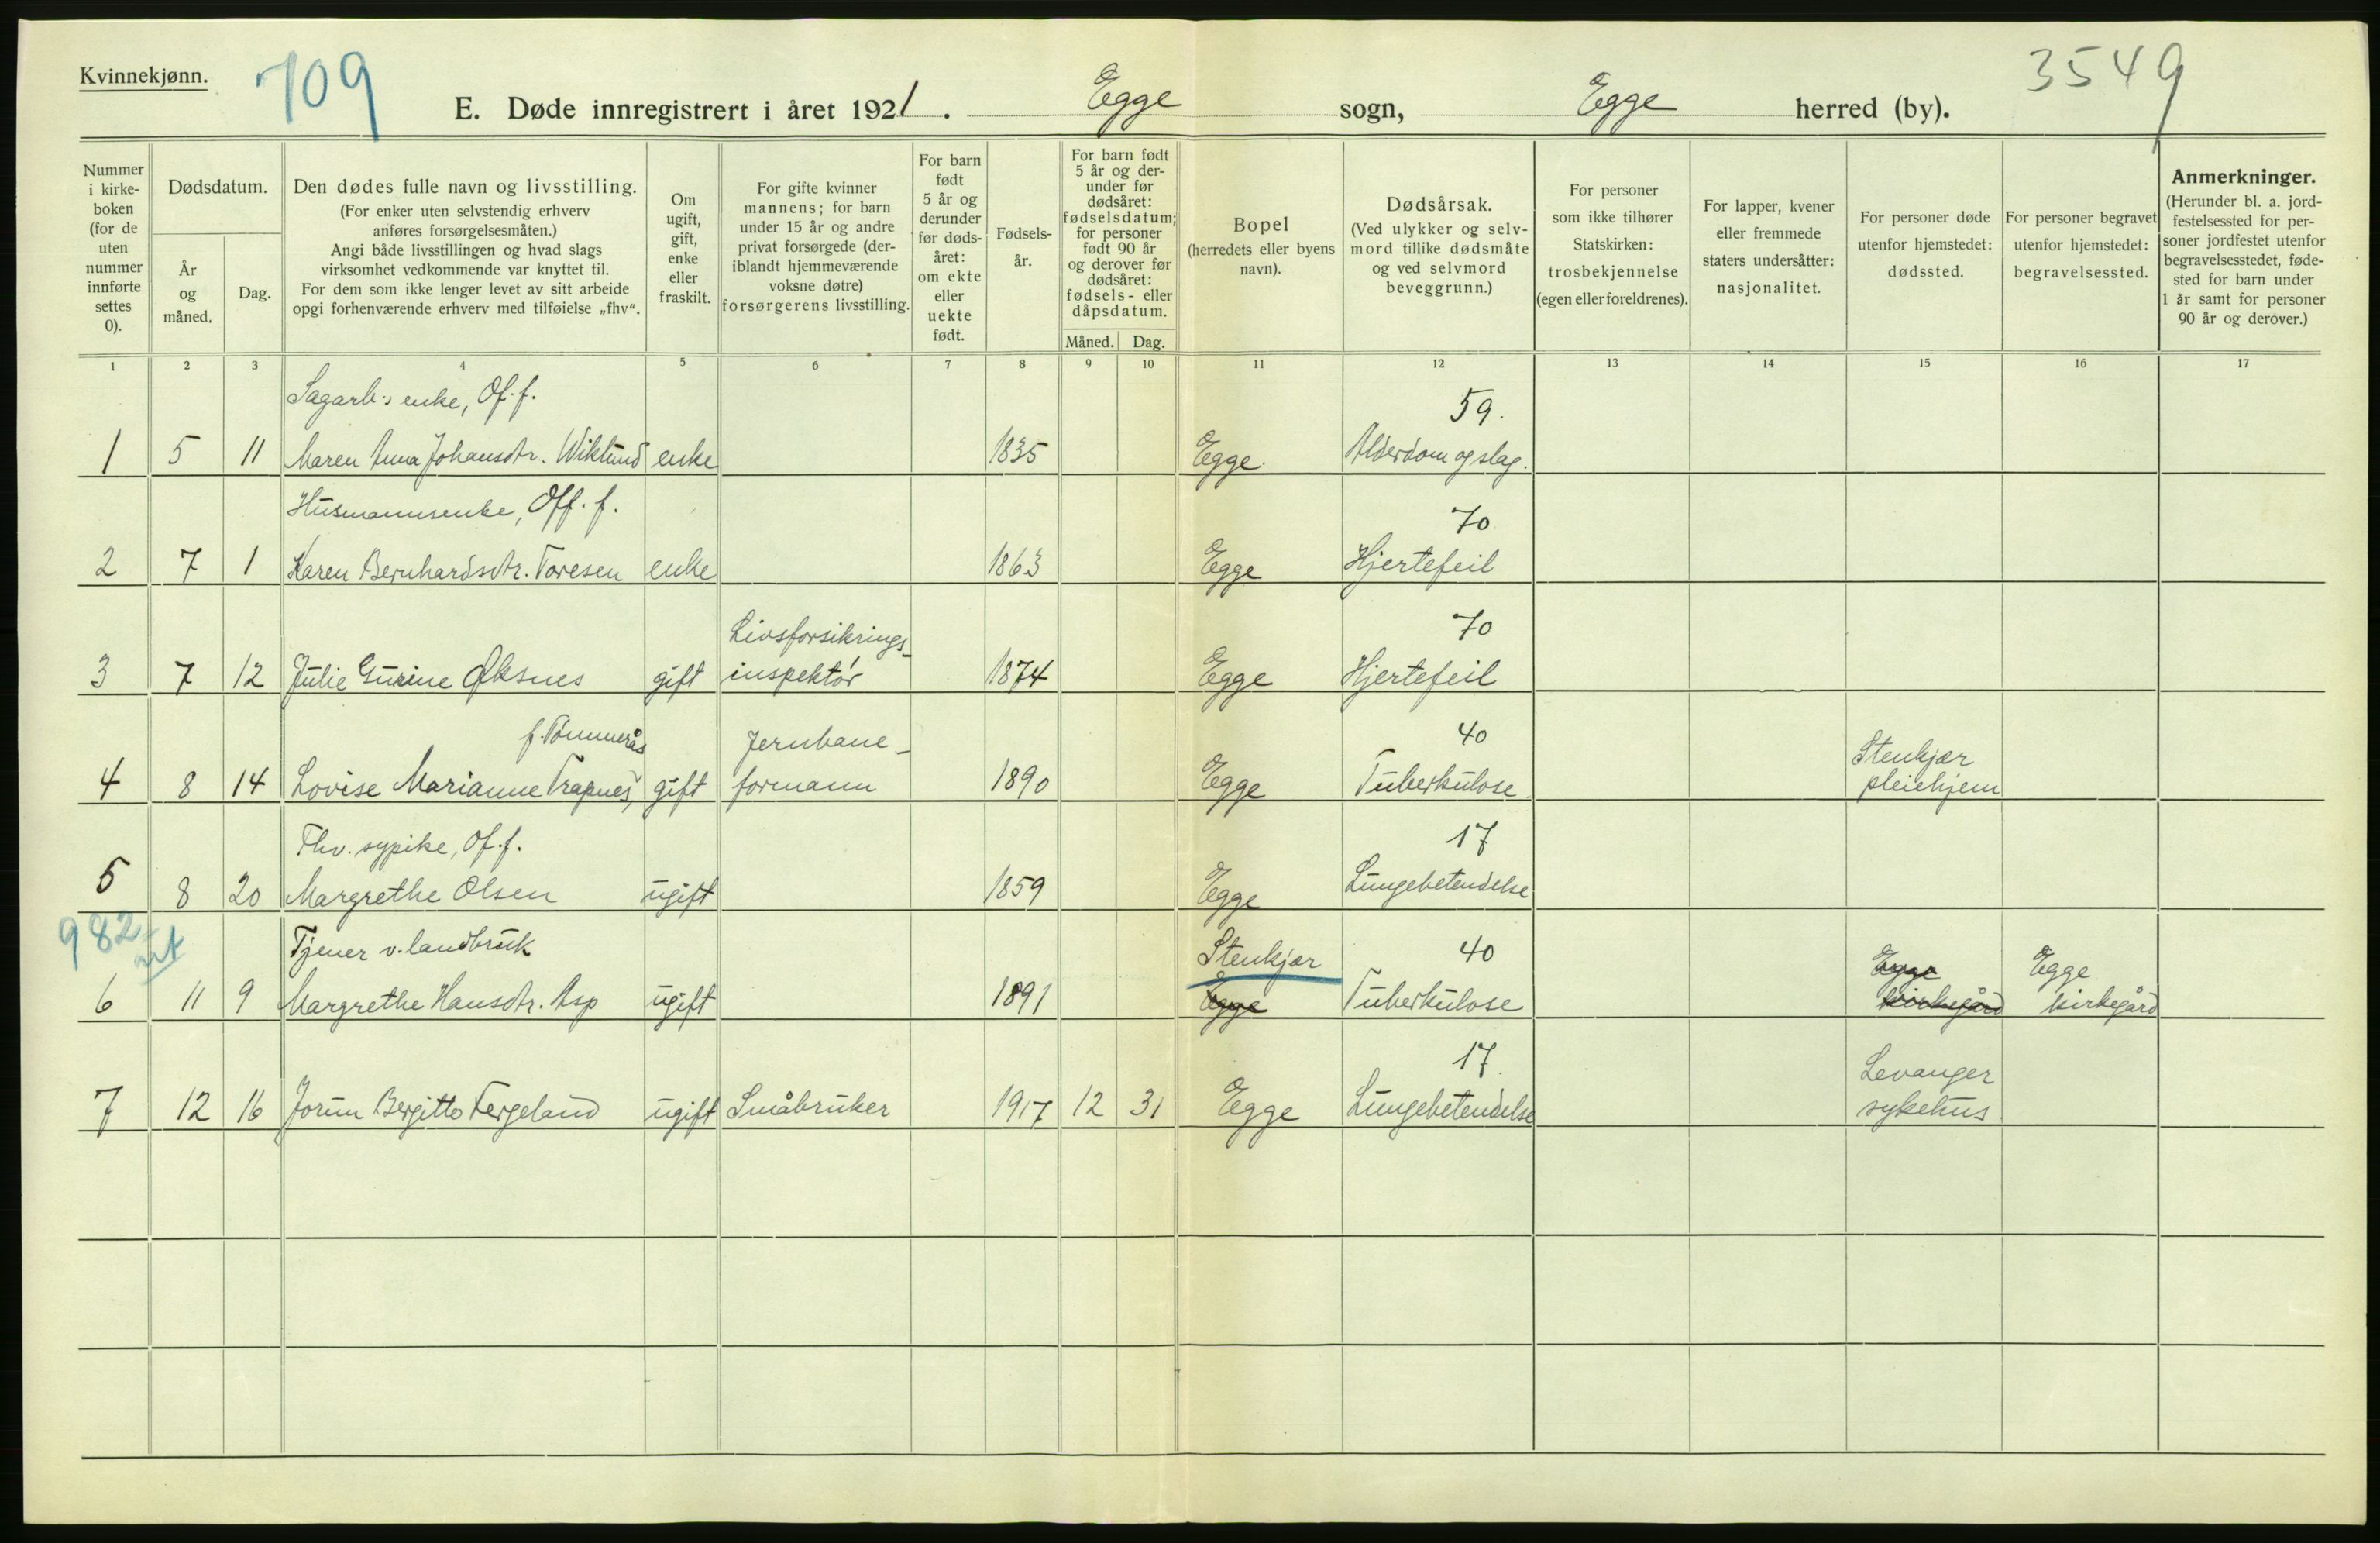 Kvinnekjønn.
709
3549
E. Døde innregistrert i året 1921. Egge sogn, Egge herred (by).
Nummer i kirke-boken (for de uten nummer innførte settes 0).
Dødsdatum.
År og måned.
Dag.
Den dødes fulle navn og livsstilling.
(For enker uten selvstendig erhverv
anføres forsørgelsesmåten.)
Angi både livsstillingen og hvad slags
virksomhet vedkommende var knyttet til.
For dem som ikke lenger levet av sitt arbeide
opgi forhenværende erhverv med tilføielse „fhv“.
Om ugift, gift, enke eller fraskilt.
For gifte kvinner
mannens; for barn
under 15 år og andre
privat forsørgede (der-
iblandt hjemmeværende
voksne døtre)
forsørgerens livsstilling.
For barn født 5 år og derunder før døds-året: om ekte eller uekte født.
Fødsels-år.
For barn født
5 år og der-
under før
dødsåret:
fødselsdatum;
for personer
født 90 år
og derover før
dødsåret:
fødsels- eller
dåpsdatum.
Måned. Dag.
Bopel
(herredets eller byens
navn).
Dødsårsak.
(Ved ulykker og selv-
mord tillike dødsmåte
og ved selvmord
beveggrunn.)
For personer
som ikke tilhører
Statskirken:
trosbekjennelse
(egen eller foreldrenes).
For lapper, kvener
eller fremmede
staters undersåtter:
nasjonalitet.
For personer døde
utenfor hjemstedet:
dødssted.
For personer begravet
utenfor hjemstedet:
begravelsessted.
Anmerkninger.
(Herunder bl. a. jord-
festelsessted for per-
soner jordfestet utenfor
begravelsesstedet, føde-
sted for barn under
1 år samt for personer
90 år og derover.)
1 2 3 4 5 6 7 8 9 10 11 12 13 14 15 16 17
Sagarb.s enke, Of.f. 59.
1 5 11 Maren Anna Johansdtr. Wiklund enke 1835 Egge. Alderdom og slag.
Husmannsenke, Off. f. 70
2 7 1 Karen Bernhardsdtr. Toresen enke 1863 Egge Hjertefeil
Livsforsikrings- 70
3 7 12 Julie Gurine Øksnes gift inspektør 1874 Egge Hjertefeil
f. Tømmerås Jernbane- 40 Stenkjær
4 8 14 Lovise Marianne Trapnes, gift formann 1890 Egge Tuberkulose pleiehjem
Fhv. sypike, Of.f. 17
5 8 20 Margrethe Olsen ugift 1859 Egge Lungebetendelse
982
Tjener v. landbruk Stenkjær 40 Egge Egge
6 11 9 Margrethe Hansdtr. Asp ugift 1891 Egge Tuberkulose kirkegård kirkegård
17. Levanger
7 12 16 Jorun Bergitte Fergeland ugift Småbruker 1917 12 31 Egge Lungebetendelse sykehus